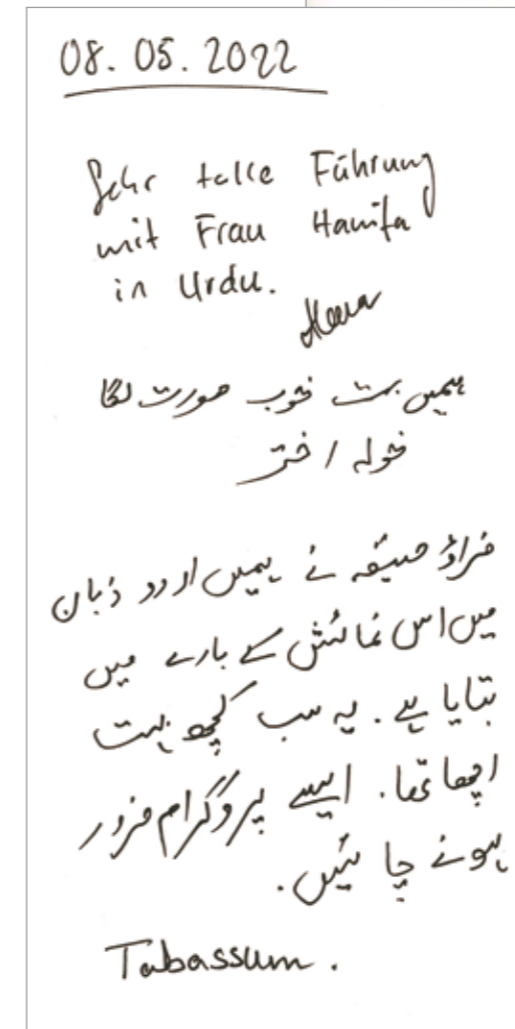 08. 05. 2022
Sehr tolle Führung
mit Frau Hanifa
in Urdu.
ہمیں بہت خوب صورت لگا
خولہ اختر
فراؤ حنیفہ نے ہمیں اردو زبان
میں اس نمائش کے بارے میں
بتایا ہے. یہ سب کچھ بہت
اچھا تھا. ایسے پروگرام ضرور
ہونے چائیں.
Tabassum.